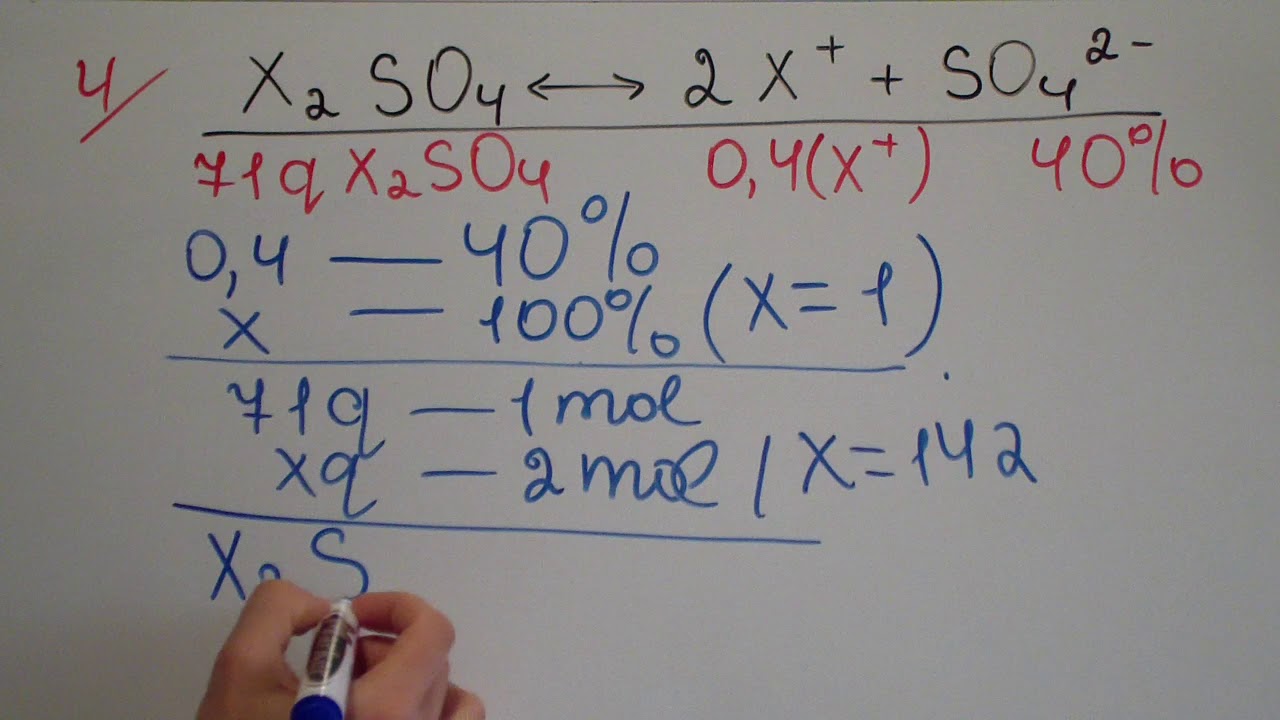 4/ X₂SO₄ ⟷ 2X⁺ + SO₄²⁻
71q X₂SO₄ 0,4(X⁺) 40%
0,4 — 40%
x — 100% (X=1)
71q — 1mol
xq — 2mol / X=142
X₂S